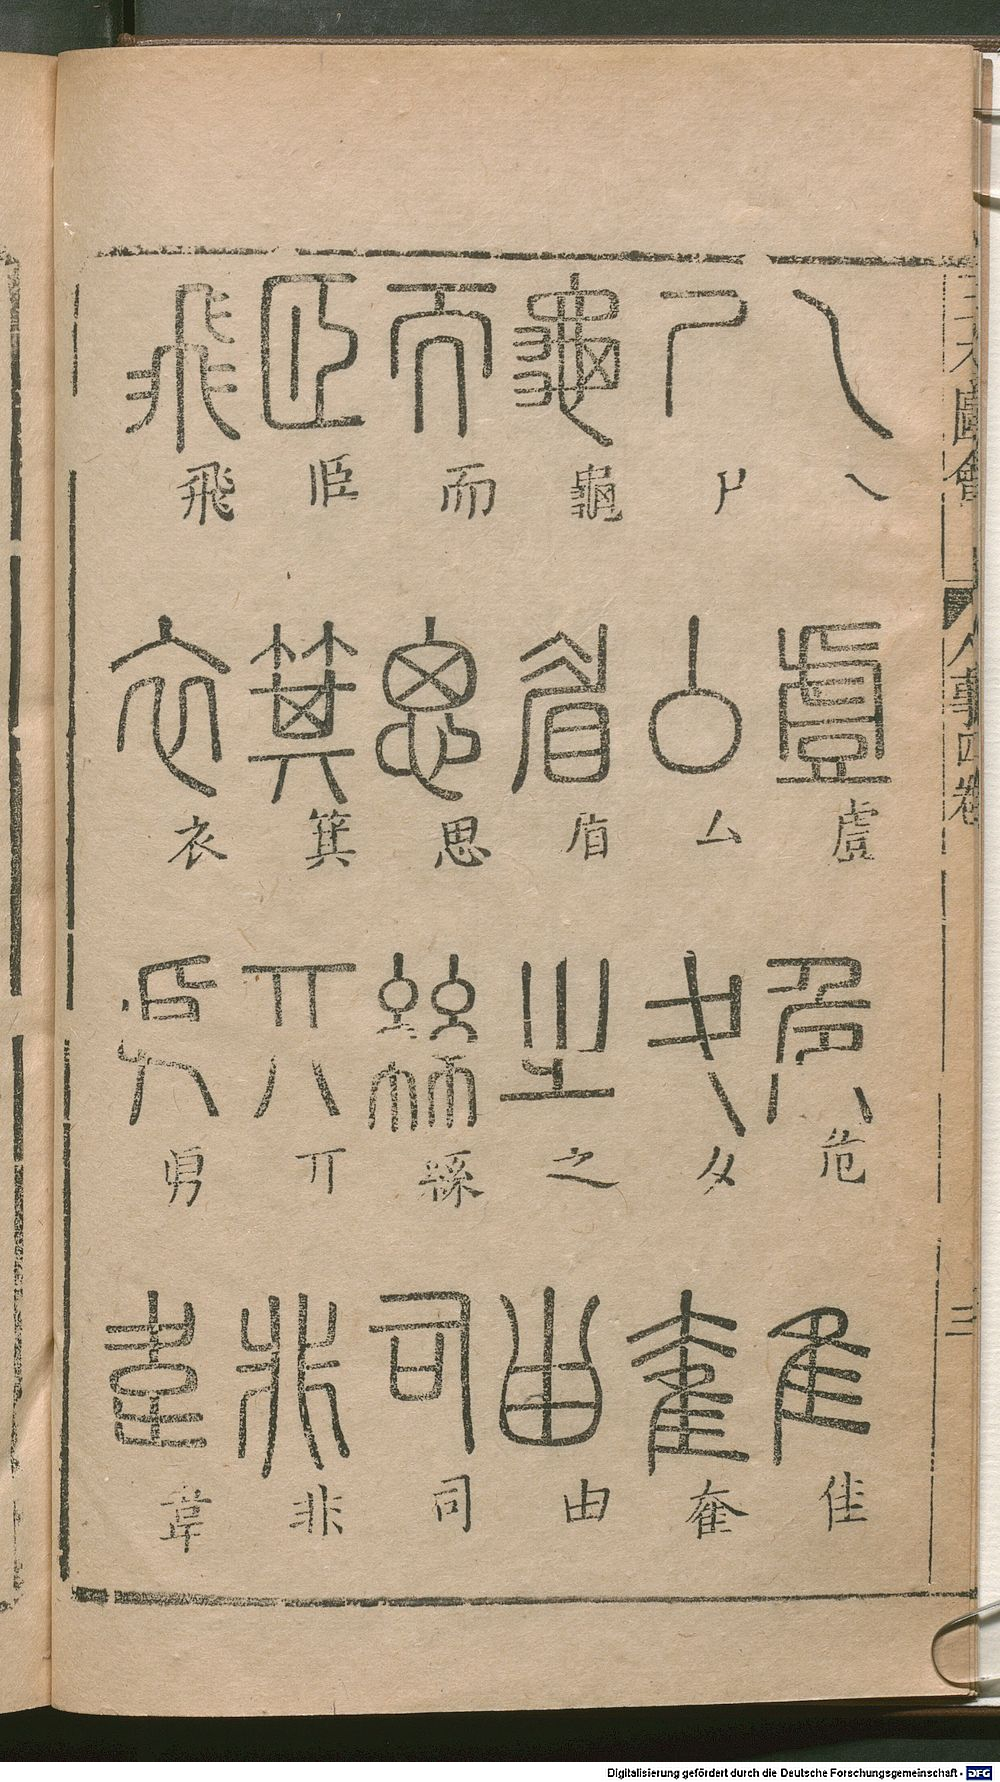 乀
龜
而
𦣝
飛
虘
厶
眉
思
箕
衣
危
夊
之
緜
丌
隹
奞
由
司
非
韋
人事四卷
三
Digitalisierung gefördert durch die Deutsche Forschungsgemeinschaft - DFG